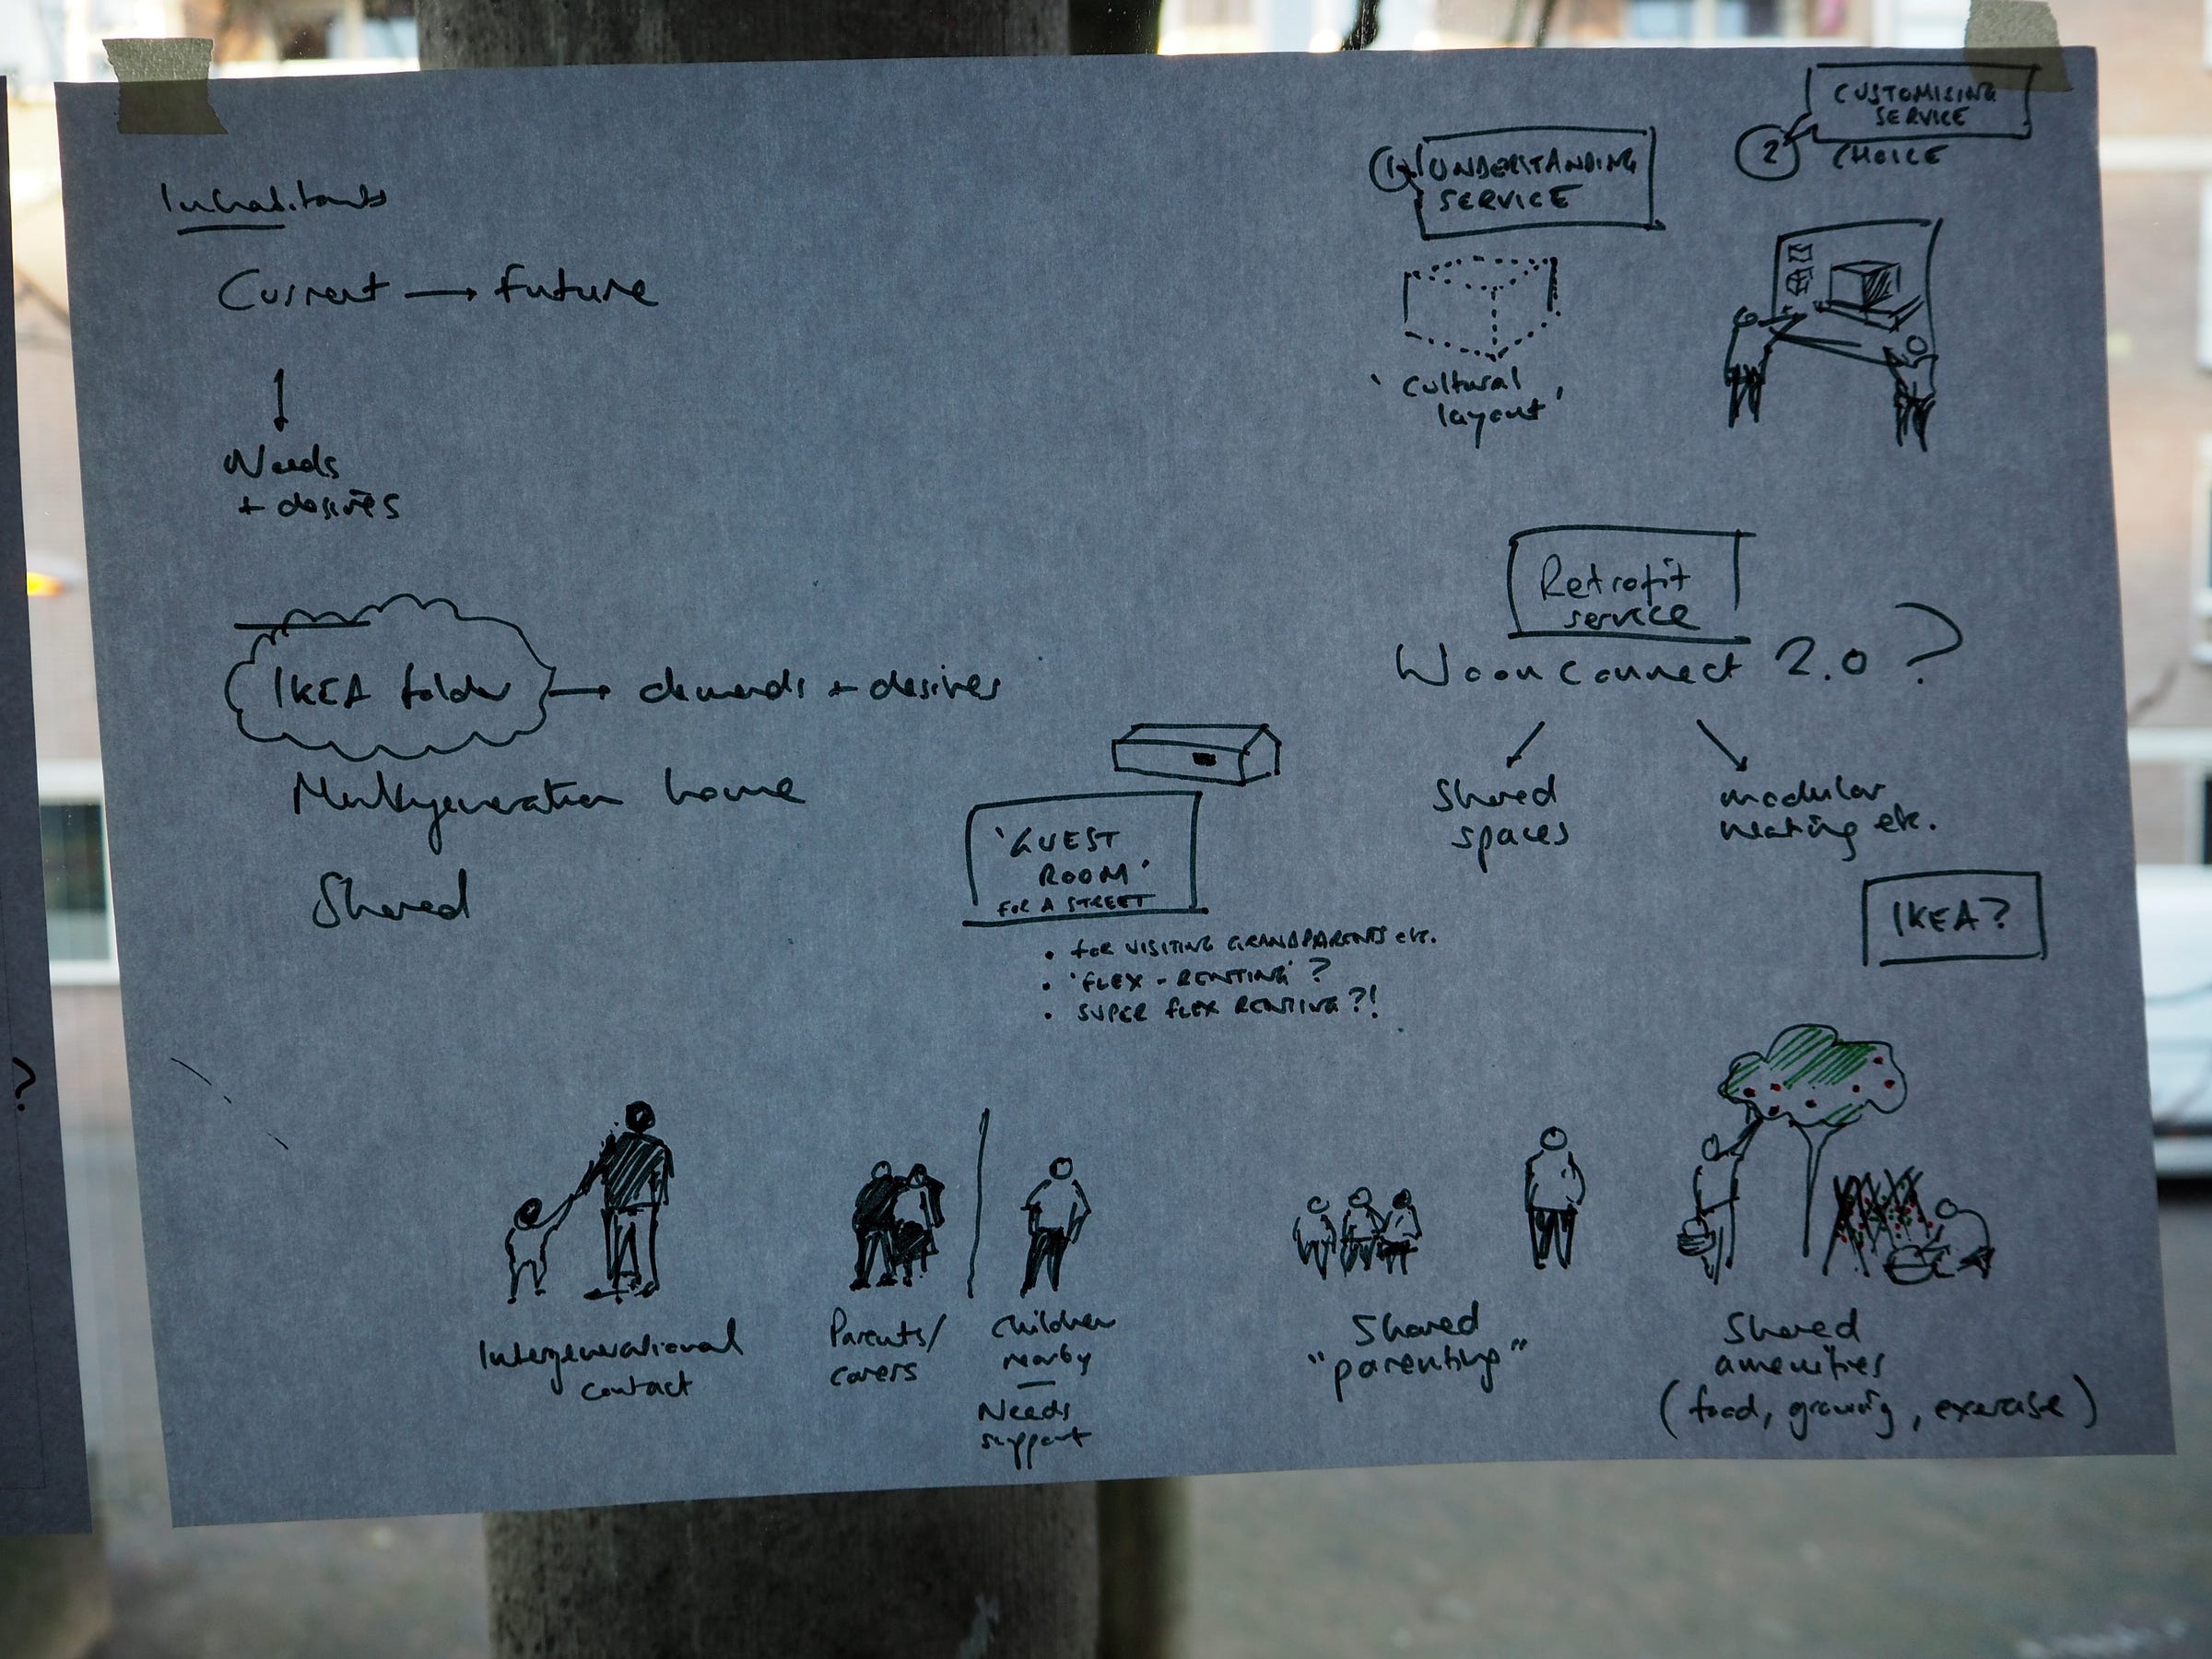 Inhabitants
Current → future
Needs
+ desires
IKEA folder → demands + desires
Multigeneration home
Shared
'GUEST
ROOM'
FOR A STREET
• FOR VISITING GRANDPARENTS etc.
• 'FLEX-RENTING' ?
• SUPER FLEX RENTING ?!
1
UNDERSTANDING
SERVICE
'Cultural
layout'
2
CUSTOMISING
SERVICE
CHOICE
Retrofit
service
Woonconnect 2.0 ?
Shared
spaces
modular
heating etc.
IKEA?
?
Intergenerational
contact
Parents/
carers
Children
nearby
—
Needs
support
Shared
"parenting"
Shared
amenities
(food, growing, exercise)